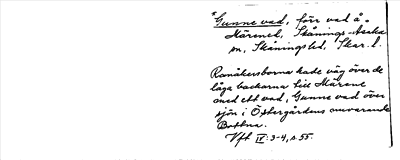 *Gunne vad, förr vad å.
Härenel, Skånings-Asaka
sn, Skånings hd, Skar. l.
Ranåkersborna hade väg över de
låga backarna till Härene
med ett vad, Gunne vad över
sjön i Östergårdens nuvarande
Bottna.
Vft IV: 3-4, s. 55.